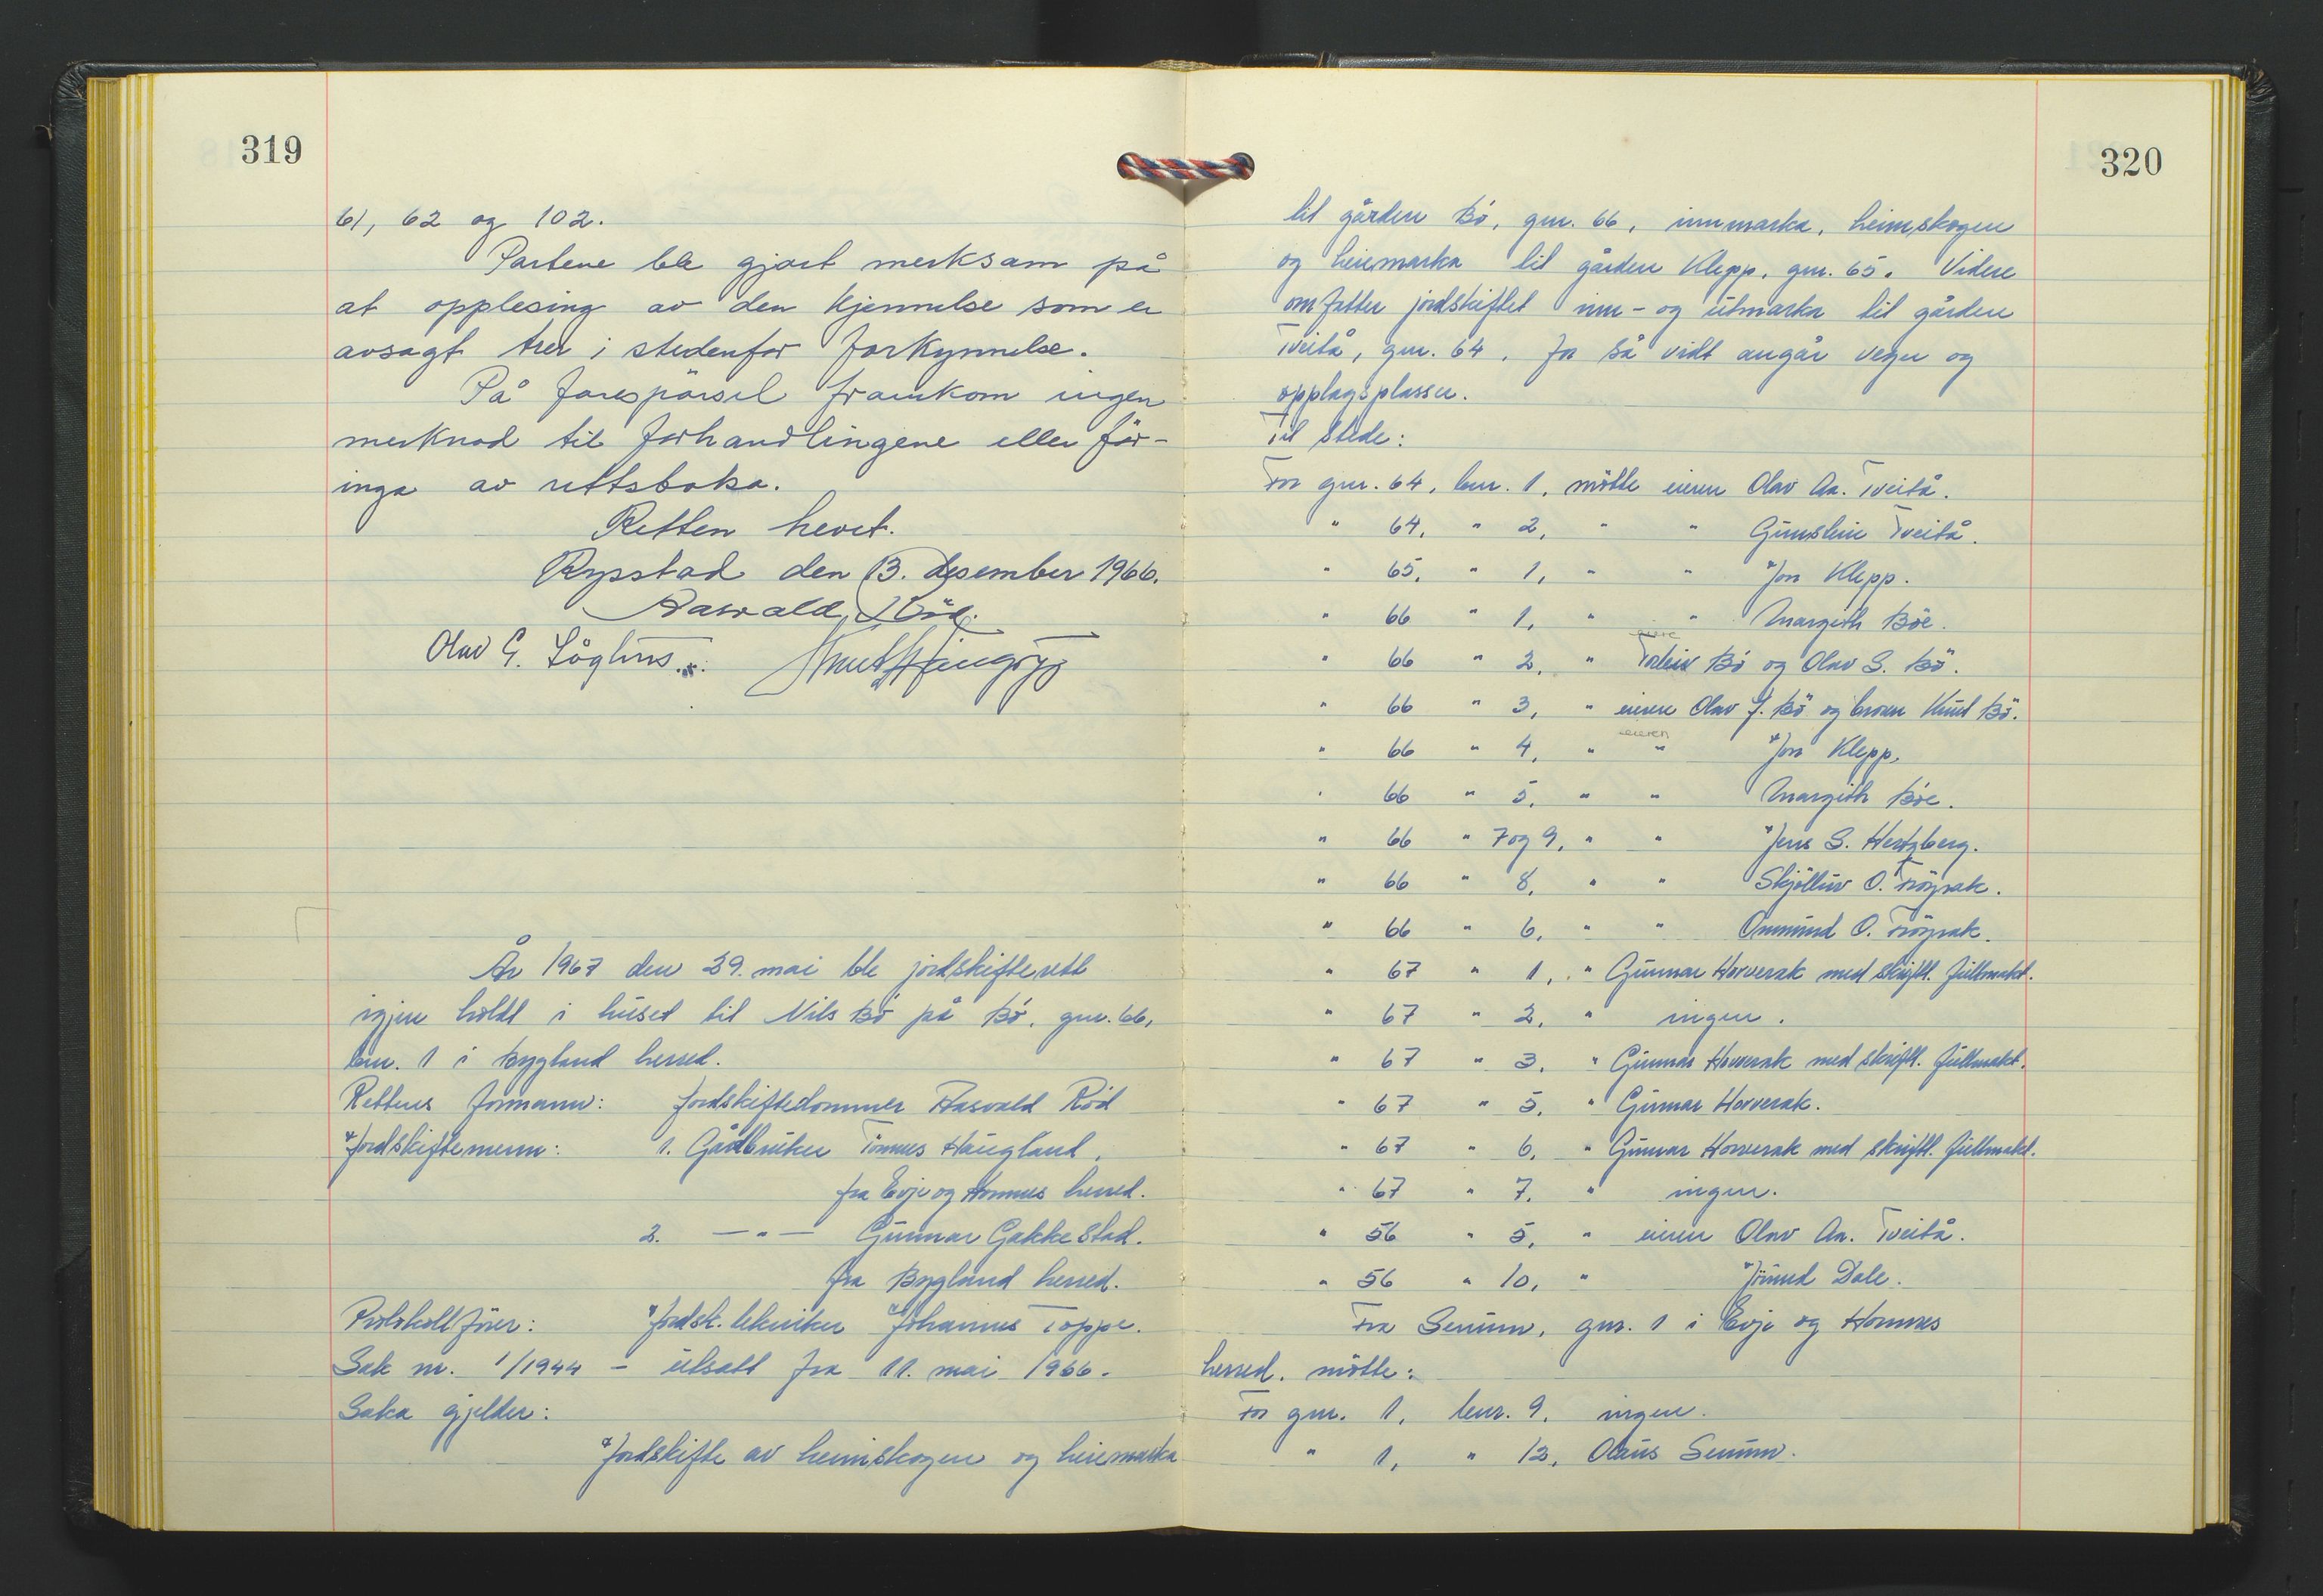 319
61, 62 og 102.
Partene ble gjort merksam på
at opplesing av den kjennelse som er
avsagt trer i stedenfor forkynnelse.
På forespörsel framkom ingen
merknad til forhandlingene eller för-
inga av rettsboka.
Retten hevet.
Rysstad den 13. desember 1966.
Aasvald Röd.
Olav G.
År 1967 den 29. mai ble jordskifterett
igjen holdt i huset til Nils Bö på Bö, gnr. 66,
bnr. 1 i Bygland herred.
Rettens formann: Jordskiftedommer Aasvald Röd
Jordskiftemenn: 1. Gårdbruker Tönnes Haugland,
fra Evje og Hornnes herred.
2. — " — Gunnar Gakkestad.
fra Bygland herred.
Protokollförer: Jordsk. tekniker Johannes Toppe.
Sak nr. 1/1944 – utsatt fra 11. mai 1966.
Saka gjelder:
Jordskifte av heimskogen og heiemarka
320
til gården Bö, gnr. 66, innmarka, heimskogen
og heiemarka til gården Klepp, gnr. 65. Videre
omfatter jordskiftet inn- og utmarka til gården
Tveitå, gnr. 64, for så vidt angår veger og
opplagsplasser.
Til stede:
For gnr. 64, bnr. 1, mötte eieren Olav Aa. Tveitå.
" 64, " 2, " " Gunstein Tveitå.
" 65, " 1, " " Jon Klepp.
" 66 " 1, " " Margith Böe.
eiere
" 66 " 2, " Torleiv Bö og Olav S. Bö.
" 66 " 3, " eieren Olav J. Bö og broren Knut Bö.
eieren
" 66 " 4, " " Jon Klepp.
" 66 " 5, " " Margith Böe.
" 66 " 7 og 9, " " Jens S. Hertzberg.
" 66 " 8, " " Skjölluv O. Fröysak.
" 66 " 6, " " Ommund O. Fröysak.
" 67 " 1, " Gunnar Horverak med skriftl. fullmakt.
" 67 " 2, " ingen.
" 67 " 3, " Gunnar Horverak med skriftl. fullmakt.
" 67 " 5, " Gunnar Horverak.
" 67 " 6, " Gunnar Horverak med skriftl. fullmakt.
" 67 " 7, " ingen.
" 56 " 5, " eieren Olav Aa. Tveitå.
" 56 " 10, " Jörund Dale.
Fra Senum, gnr. 1 i Evje og Hornnes
herred, mötte:
For gnr. 1, bnr. 9, ingen.
" 1, " 13, Olaus Senum.